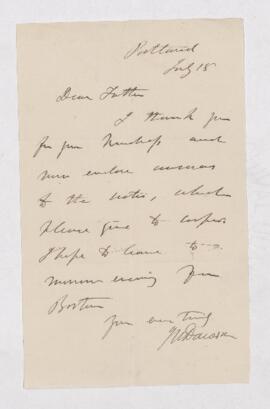 Portland
July 18
Dear Father
I thank you
for your and
now enclose
to the notes, which
please give to
I hope to leave to-
morrow evening for
Boston
your ever truly